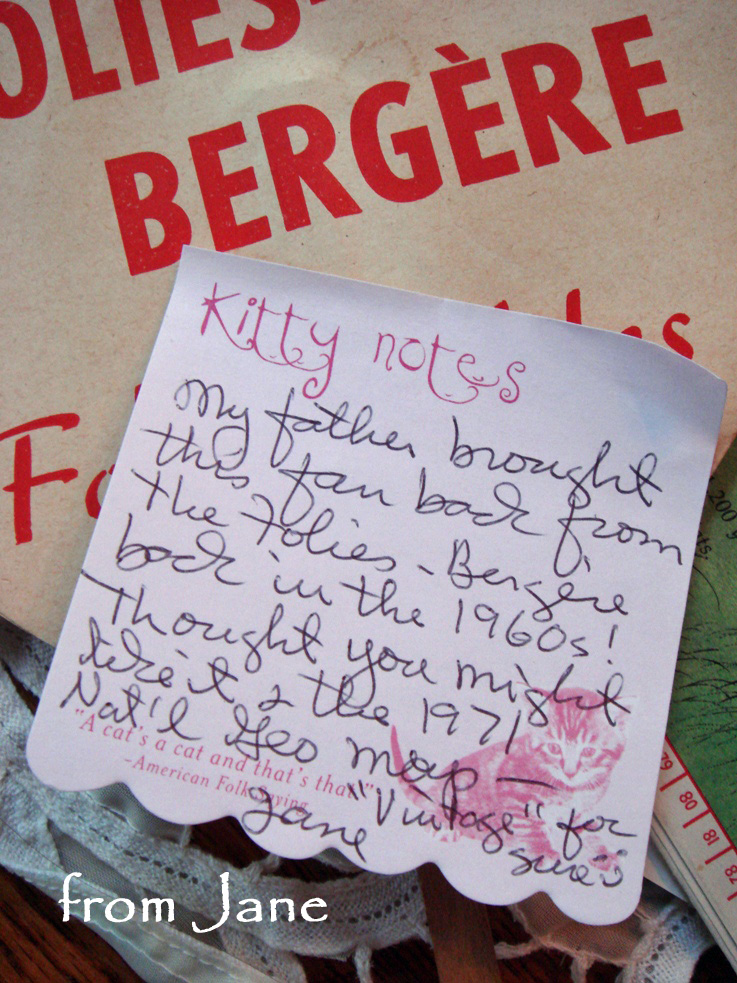 OLIES-
BERGÈRE
Kitty notes
My father brought
this fan back from
the Folies-Bergère
back in the 1960s!
Thought you might
like it & the 1971
Nat'l Geo map —
"Vintage" for
sure
Jane
"A cat's a cat and that's that."
-American Folk Saying
200
79
80
81
82
from Jane